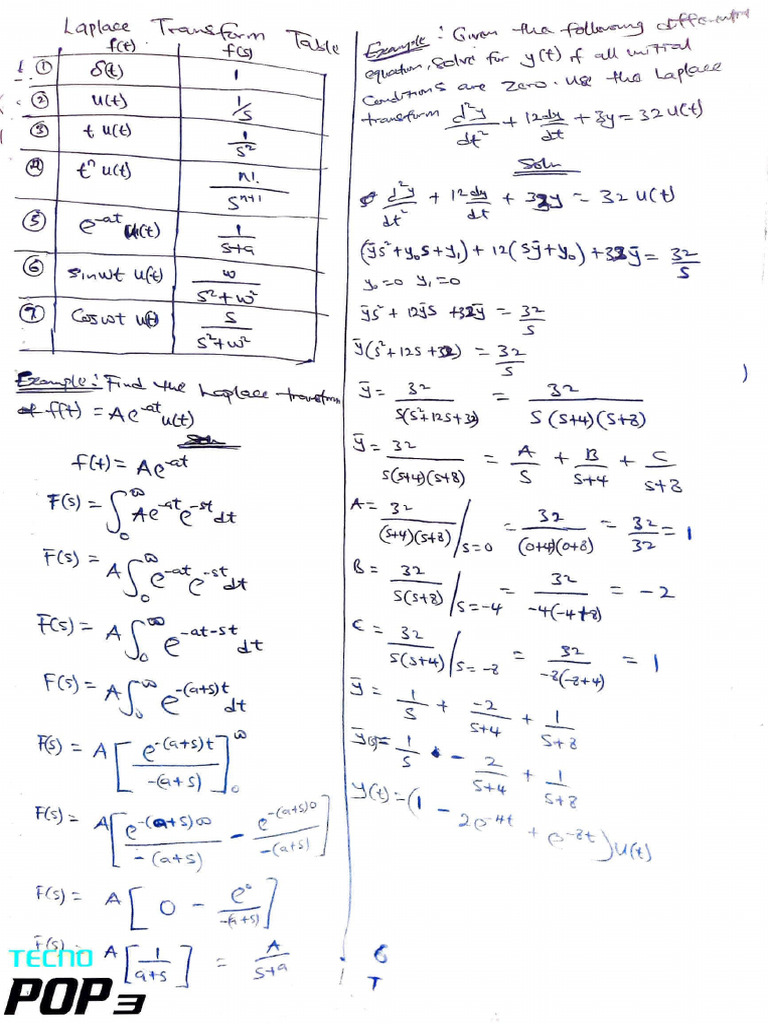 Laplace Transform Table
f(t) f(s)
① δ(t) 1
② u(t) 1/s
③ t u(t) 1/s²
④ tⁿ u(t) n!/sⁿ⁺¹
⑤ e^-at u(t) 1/(s+a)
⑥ sinwt u(t) w/(s²+w²)
⑦ Coswt u(t) s/(s²+w²)
Example: Find the Laplace transform
of f(t) = Ae^-at u(t)
Soln
f(t) = Ae^-at
F(s) = ∫₀^∞ Ae^-at e^-st dt
F(s) = A∫₀^∞ e^-at e^-st dt
F(s) = A∫₀^∞ e^-at-st dt
F(s) = A∫₀^∞ e^-(a+s)t dt
F(s) = A[e^-(a+s)t / -(a+s)]₀^∞
F(s) = A[e^-(a+s)∞ / -(a+s) - e^-(a+s)0 / -(a+s)]
F(s) = A[0 - e⁰/-(a+s)]
F(s) = A[1/(a+s)] = A/(s+a)
Example: Given the following differential
equation, solve for y(t) if all initial
Conditions are zero. Use the Laplace
transform d²y/dt² + 12dy/dt + 3y = 32u(t)
Soln
d²y/dt² + 12dy/dt + 32y = 32u(t)
(ȳs² + y₀s + y₁) + 12(sȳ + y₀) + 32ȳ = 32/s
y₀=0 y₁=0
ȳs² + 12ȳs + 32ȳ = 32/s
ȳ(s² + 12s + 32) = 32/s
ȳ = 32/(s(s²+12s+32)) = 32/(s(s+4)(s+8))
ȳ = 32/(s(s+4)(s+8)) = A/s + B/(s+4) + C/(s+8)
A = 32/((s+4)(s+8)) |s=0 = 32/((0+4)(0+8)) = 32/32 = 1
B = 32/(s(s+8)) |s=-4 = 32/(-4(-4+8)) = -2
C = 32/(s(s+4)) |s=-8 = 32/(-8(-8+4)) = 1
ȳ = 1/s + -2/(s+4) + 1/(s+8)
ȳ(s) = 1/s - 2/(s+4) + 1/(s+8)
y(t) = (1 - 2e^-4t + e^-8t)u(t)
6
T
TECNO
POP3